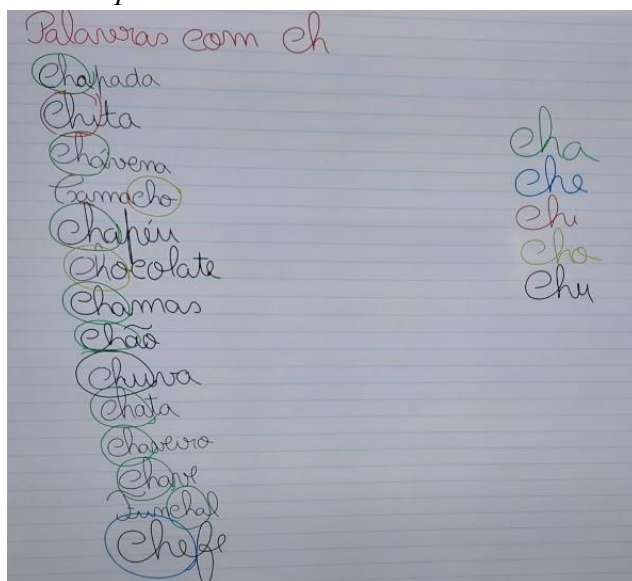 Palavras com ch
Chapada
Chita
Chávena
Camacho
Chapéu
Chocolate
Chamas
Chão
Chuva
Chata
chaveiro
Chave
Funchal
Chefe
cha
che
chi
cho
Chu